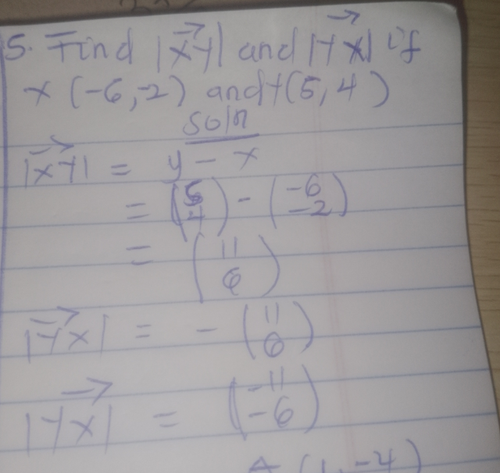 5. Find |XY| and |YX| if
x (-6, -2) and Y(5, 4)
soln
|XY| = y - x
= (5 4) - (-6 -2)
= (11 6)
|YX| = - (11 6)
|YX| = (-11 -6)
A (1, -4)